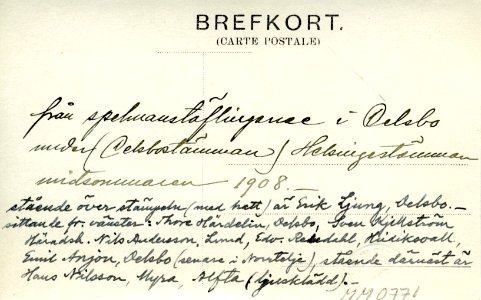 BREFKORT.
(CARTE POSTALE)
från spelmanstäflingarne i Delsbo
under (Delsbostämman) Helsingestämman
midsommaren 1908. —
stående över stämpeln (med hatt) är Erik Ljung, Delsbo. —
sittande fr. vänster: Thore Härdelin, Delsbo, Sven Kjellström
Häradsh. Nils Andersson, Lund, Edv. Hudiksvall,
Emil Anjou, Delsbo (senare i Norrtelje) stående därnäst är
Hans Nilsson, Myra, Alfta (ljusklädd). —
MM 0771